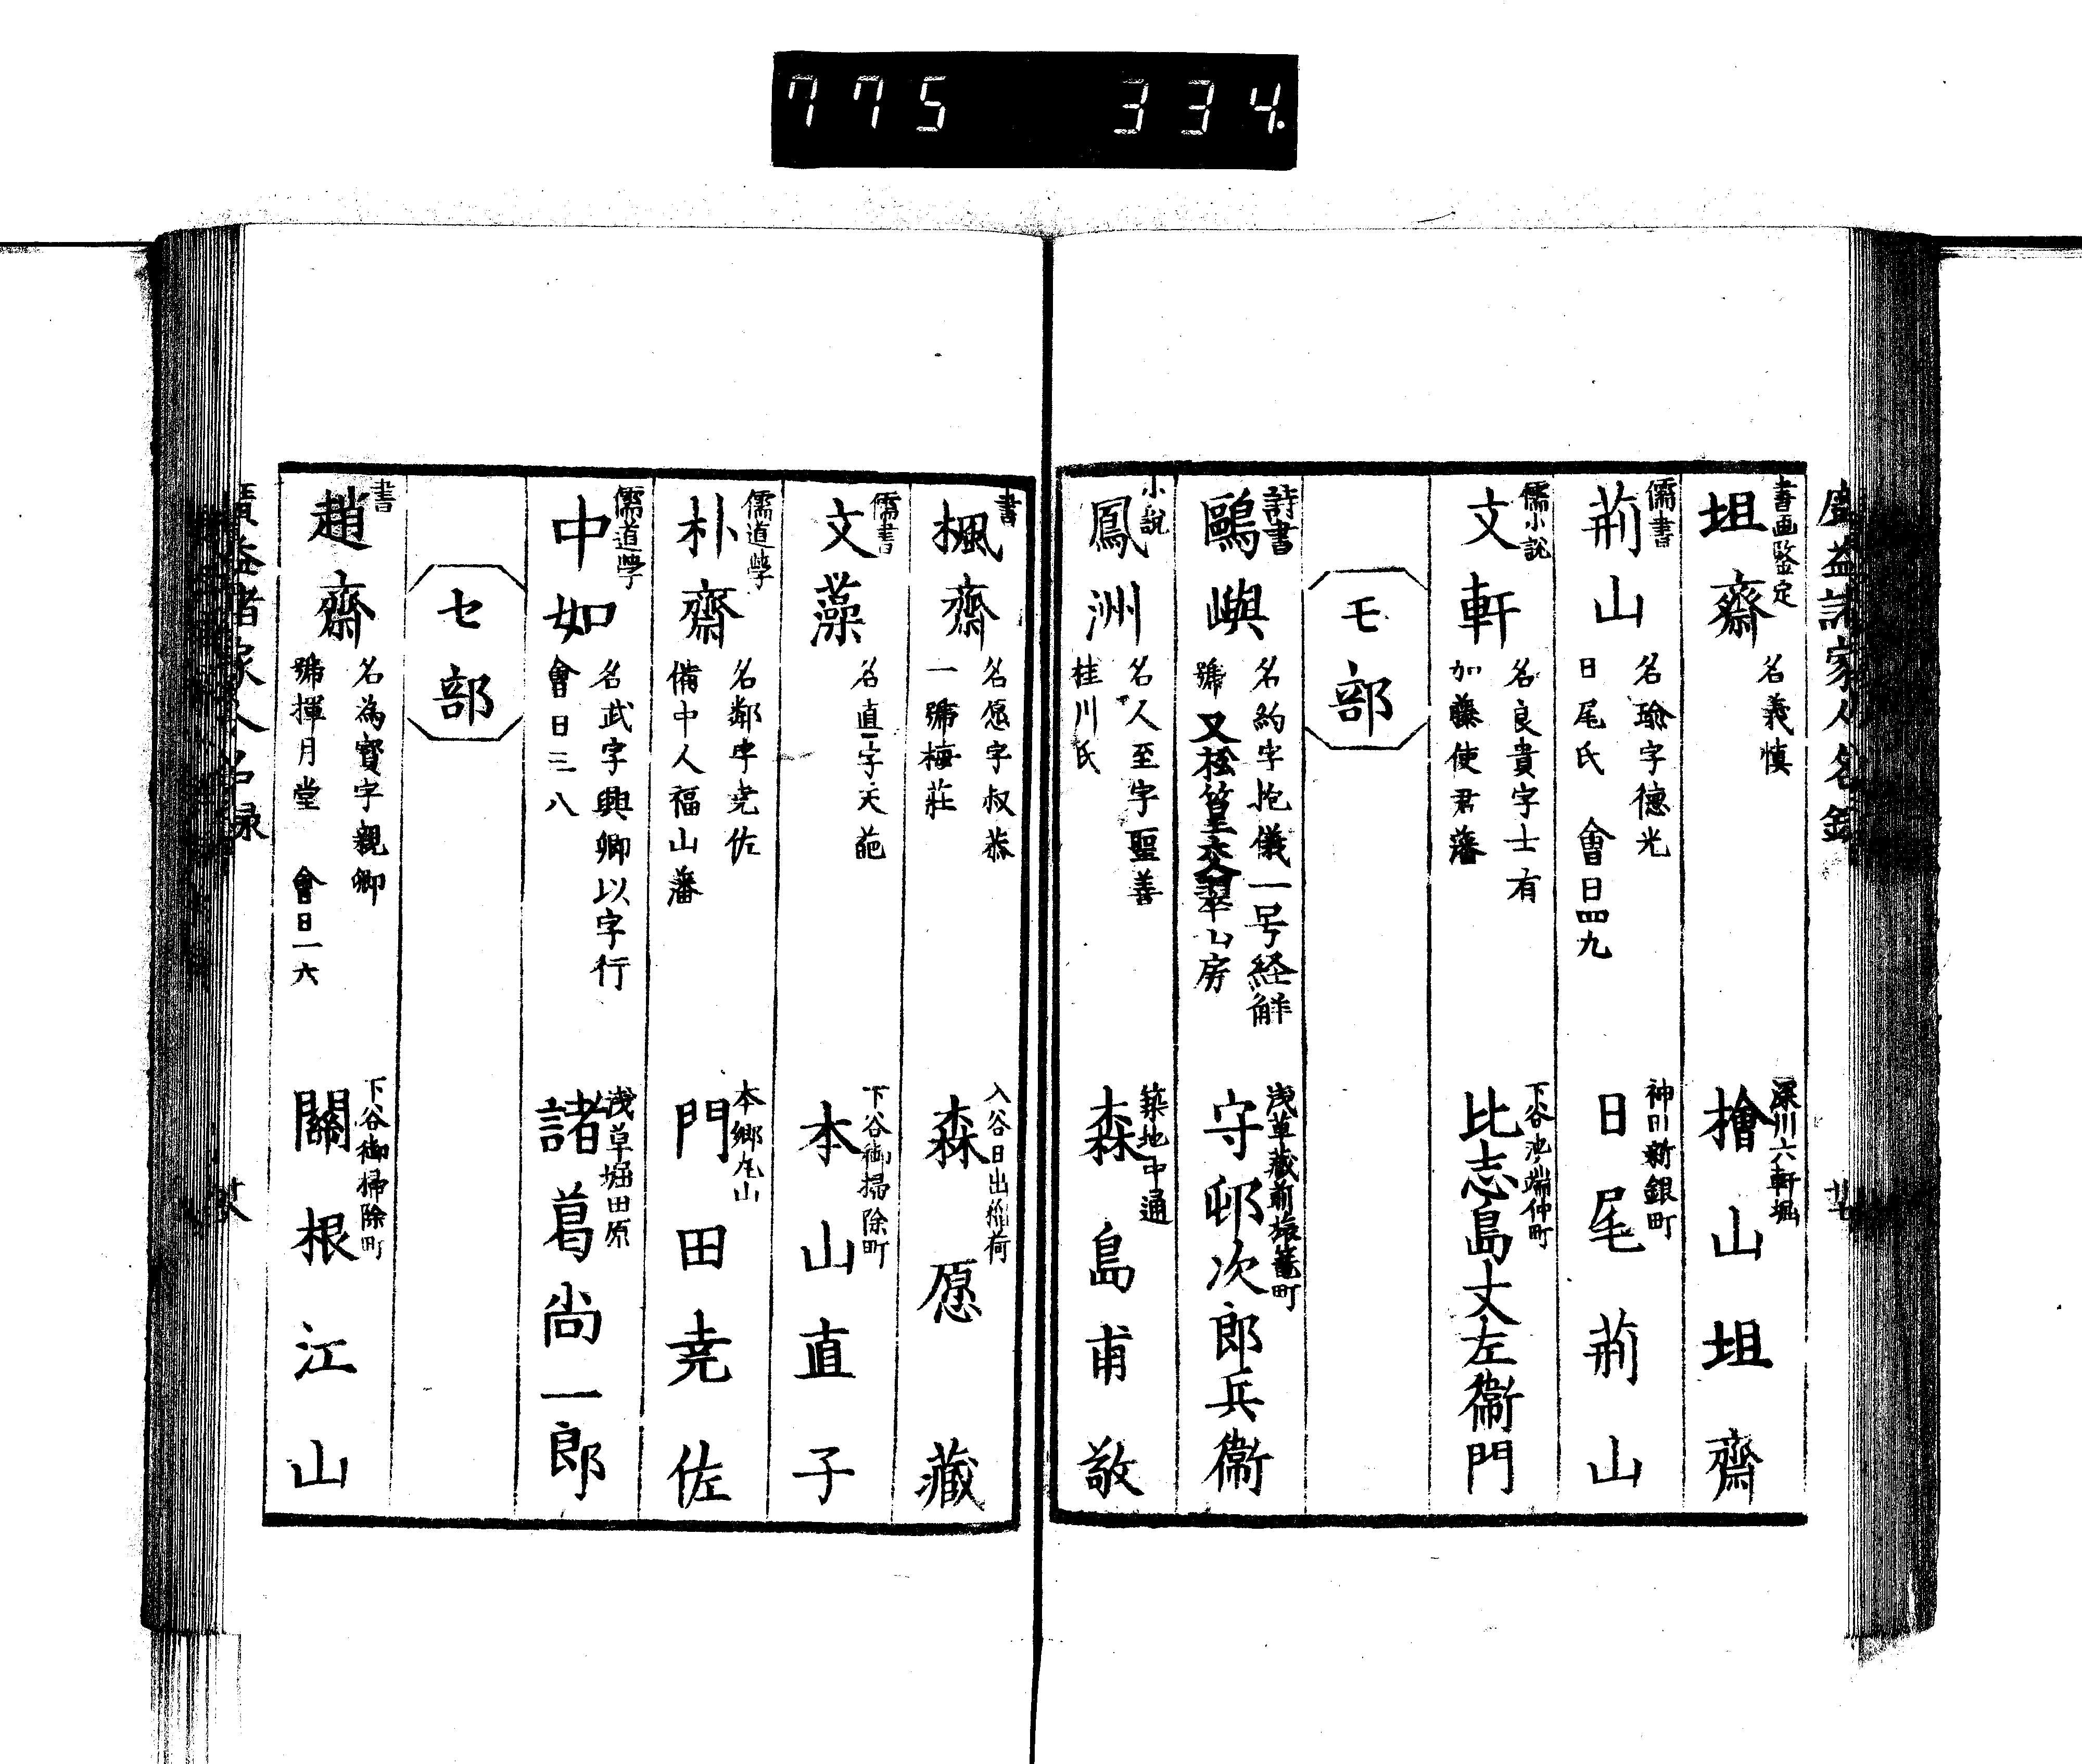 775 334.
廣益諸家人名録
書画鑒定
坦齋
名義慎
深川六軒堀
檜山坦齋
儒書
荊山
名瑜字德光
日尾氏 會日四九
神田新銀町
日尾荊山
儒小説
文軒
名良貴字士有
加藤使君藩
下谷池端仲町
比志島文左衞門
モ部
詩書
鷗嶼
名約字抱儀一号経解
浅草藏前旅籠町
守邨次郎兵衞
小説
鳳洲
名人至字聖善
桂川氏
築地中通
森島甫敬
書
楓齋
名愿字叔恭
一號梅莊
入谷日出稲荷
森愿藏
儒書
文藻
名直一字天葩
下谷御掃除町
本山直子
儒道學
朴齋
名鄰字尭佐
備中人福山藩
本郷丸山
門田尭佐
儒道學
中如
名武字興卿以字行
會日三八
浅草堀田原
諸葛尚一郎
セ部
書
趙齋
名為寶字親卿
號揮月堂 會日一六
下谷御掃除町
關根江山
廣益諸家人名録